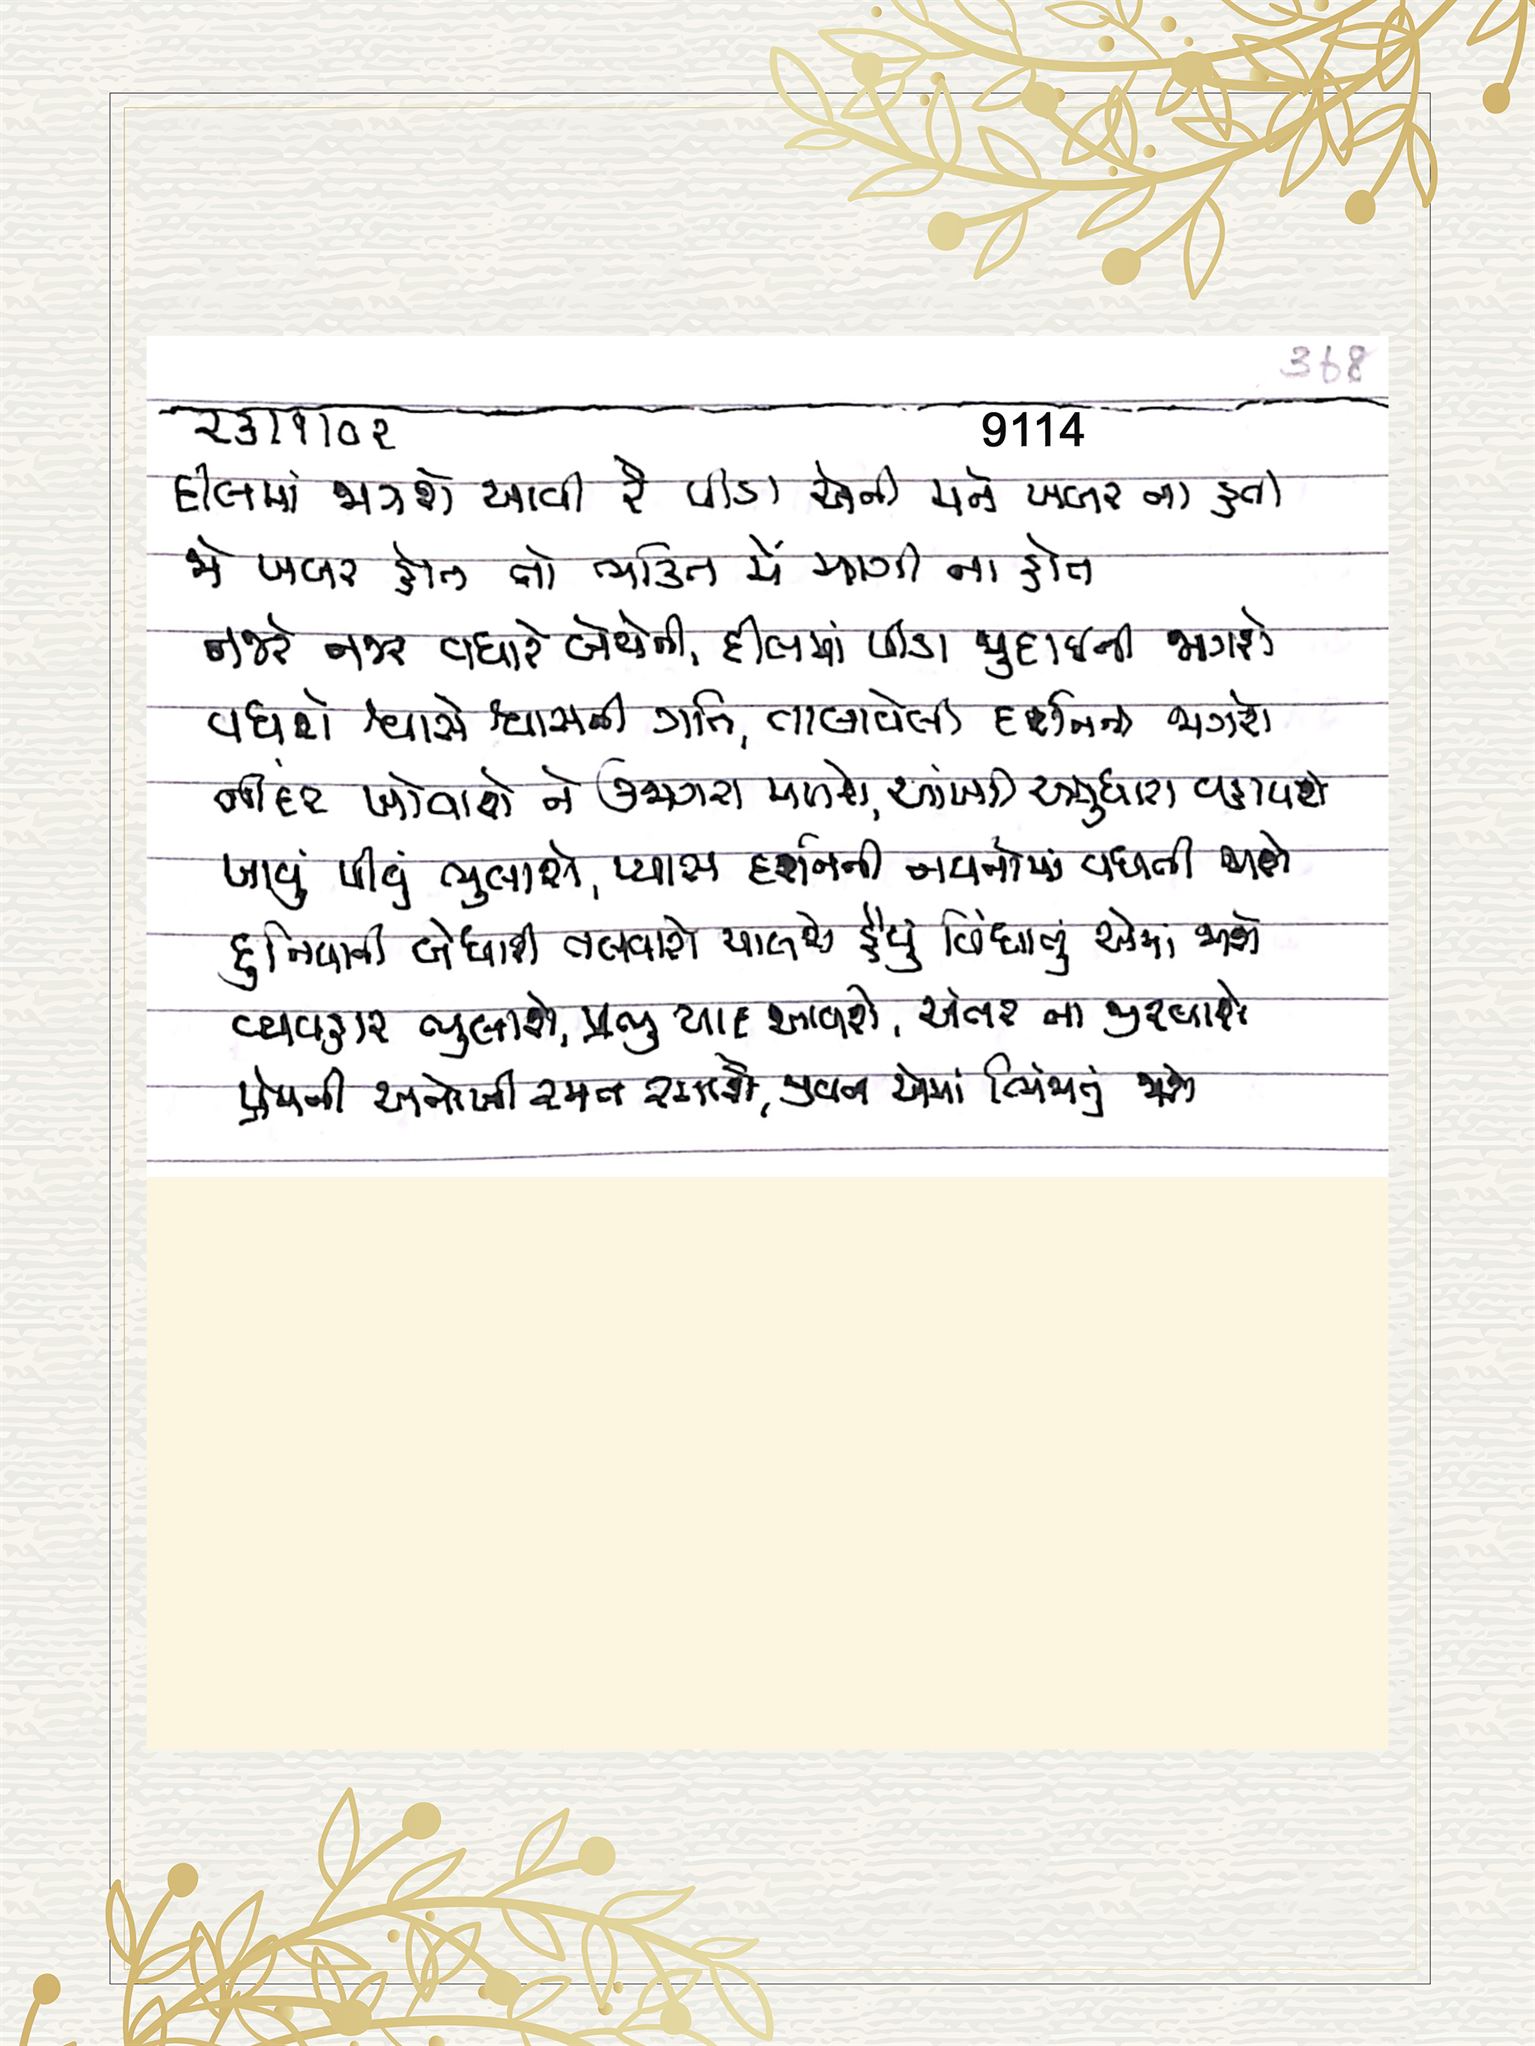 368
૨૩/૧/૦૨
9114
દીલમાં જાગશે આવી રે પીડા એની મને ખબર ના હતી
જો ખબર હોત તો ભક્તિ મેં માગી ના હોત
નજરે નજર વધારે બેચેની, દીલમાં પીડા જુદાઈની જાગશે
વધશે શ્વાસે શ્વાસની ગતિ, તાલાવેલી દર્શનની જાગશે
નીંદર ખોવાશે ને ઉજાગરા મળશે, આંખડી અશ્રુધારા વહાવશે
ખાવું પીવું ભુલાશે, પ્યાસ દર્શનની નયનોમાં વધતી જાશે
દુનિયાની બેધારી તલવારો ચાલશે હૈયું વિંધાતું એમાં જાશે
વ્યવહાર ભુલાશે, પ્રભુ યાદ આવશે, અંતર ના જીરવાશે
પ્રેમની અનોખી રમત રમાશે, જીવન એમાં ભિંજાતું જાશે